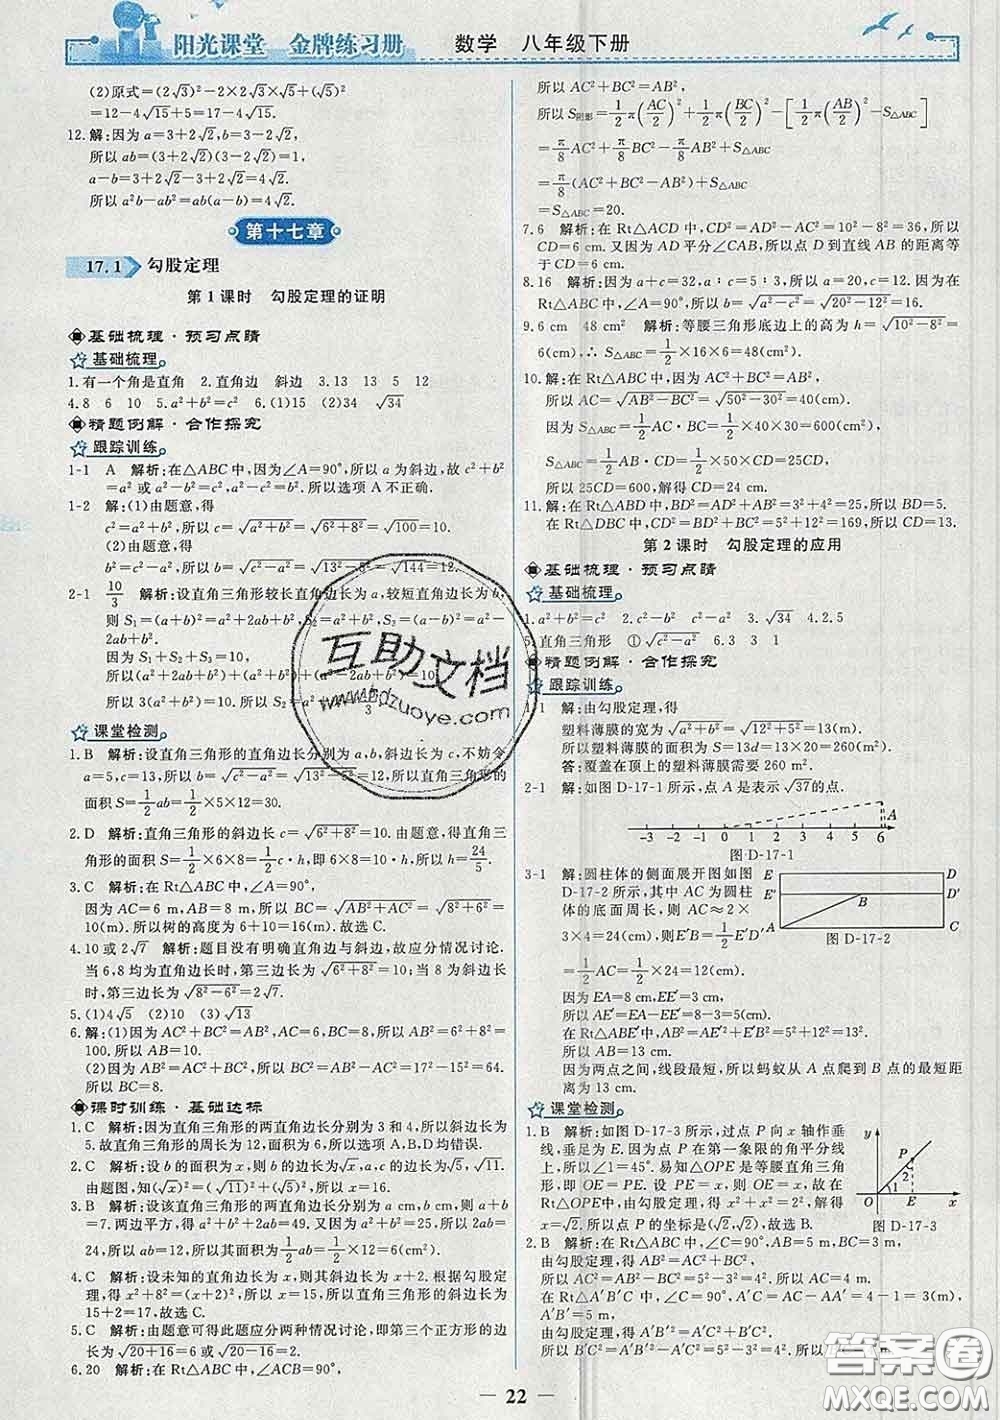 阳光课堂 金牌练习册 数学 八年级下册
(2)原式=(2√3)²-2×2√3×√5+(√5)²
=12-4√15+5=17-4√15.
12.解:因为a=3+2√2,b=3-2√2,
所以ab=(3+2√2)(3-2√2)=1,
a-b=3+2√2-3+2√2=4√2.
所以a²b-ab²=ab(a-b)=4√2.
第十七章
17.1 勾股定理
第1课时 勾股定理的证明
基础梳理·预习点睛
基础梳理
1.有一个角是直角 2.直角边 斜边 3.13 13 5 12
4.8 6 10 5.a²+b²=c² 6.(1)15 (2)34 √34
精题例解·合作探究
跟踪训练
1-1 A 解析:在△ABC中,因为∠A=90°,所以a为斜边,故c²+b²
=a²或a²-b²=c²,所以选项A不正确.
1-2 解:(1)由题意,得
c²=a²+b²,所以c=√(a²+b²)=√(6²+8²)=√100=10.
(2)由题意,得
b²=c²-a²,所以b=√(c²-a²)=√(13²-5²)=√144=12.
2-1 10/3 解析:设直角三角形较长直角边长为a,较短直角边长为b,
则S₁=(a+b)²=a²+2ab+b²,S₂=a²+b²,S₃=(a-b)²=a²-
2ab+b².
因为S₁+S₂+S₃=10,
所以(a²+2ab+b²)+(a²+b²)+(a²-2ab+b²)=10.
所以3(a²+b²)=10.所以S₂=a²+b²=10/3.
课堂检测
1.B 解析:设直角三角形的直角边长分别为a,b,斜边长为c,不妨令
a=5,c=13,所以b=√(c²-a²)=√(13²-5²)=12,所以直角三角形的
面积S=1/2ab=1/2×5×12=30.
2.D 解析:直角三角形的斜边长c=√(6²+8²)=10.由题意,得直角三
角形的面积S=1/2×6×8=1/2c·h,即6×8=10h,所以h=24/5.
3.C 解析:在Rt△ABC中,∠A=90°,
因为AC=6 m,AB=8 m,所以BC=√(AB²+AC²)=√(8²+6²)=
10(m).所以树的高度为6+10=16(m).故选C.
4.10或2√7 解析:题目没有明确直角边与斜边,故应分情况讨论.
当6,8均为直角边长时,第三边长为√(6²+8²)=10;当8为斜边长
时,第三边长为√(8²-6²)=2√7.
5.(1)4√5 (2)10 (3)√13
6.解:(1)因为AC²+BC²=AB²,AC=6,BC=8,所以AB²=6²+8²=
100.所以AB=10.
(2)因为AC²+BC²=AB²,所以BC²=AB²-AC²=17²-15²=64.
所以BC=8.
课时训练·基础达标
1.C 解析:因为直角三角形的两直角边长分别为3和4,所以斜边长为
5.故直角三角形的周长为12,面积为6,所以选项A,B,D均错误.
2.C 解析:设b的面积为x,则b的边长为√x,a,c的边长为√5,√11.
由题图,知(√x)²=(√11)²+(√5)²,所以x=16.
3.B 解析:设该直角三角形的两直角边长分别为a cm,b cm,则a+b
=7.两边平方,得a²+2ab+b²=49.又因为a²+b²=25,所以2ab=
24,所以ab=12,所以其面积为1/2ab=1/2×12=6(cm²).
4.C 解析:设未知的直角边长为x,则斜边长为x+2.根据勾股定
理,得x²+8²=(x+2)²,所以x=15,所以直角三角形的斜边长为
15+2=17,故选C.
5.C 解析:由题意可得此题应分两种情况讨论,即第三个正方形的边长
为√(20+16)=6或√(20-16)=2.
6.20 解析:在Rt△ABC中,∠ACB=90°,
所以AC²+BC²=AB²,
所以S阴影=1/2π(AC/2)²+1/2π(BC/2)²-[1/2π(AB/2)²-S△ABC]
=π/8AC²+π/8BC²-π/8AB²+S△ABC
=π/8(AC²+BC²-AB²)+S△ABC
=S△ABC=20.
7.6 解析:在Rt△ACD中,CD²=AD²-AC²=10²-8²=36,所以
CD=6 cm.又因为AD平分∠CAB,所以点D到直线AB的距离等
于CD=6 cm.
8.16 解析:因为a+c=32,a:c=5:3,所以a=20,c=12.因为
∠A=90°,所以△ABC是直角三角形.所以b=√(a²-c²)=√(20²-12²)=16.
9.6 cm 48 cm² 解析:等腰三角形底边上的高为h=√(10²-8²)=
6(cm),∴S△ABC=1/2×16×6=48(cm²).
10.解:在Rt△ABC中,因为AC²+BC²=AB²,
所以AC=√(AB²-BC²)=√(50²-30²)=40(cm).
因为S△ABC=1/2AC·BC=1/2×40×30=600(cm²),
S△ABC=1/2AB·CD=1/2×50×CD=25CD,
所以25CD=600,解得CD=24 cm.
11.解:在Rt△ABD中,BD²=AD²+AB²=3²+4²=25,所以BD=5.
在Rt△DBC中,CD²=BD²+BC²=5²+12²=169,所以CD=13.
第2课时 勾股定理的应用
基础梳理·预习点睛
基础梳理
1.a²+b²=c² 2.c²-b² c²-a² 3.√34 4.2.5
5.直角三角形 ①√(c²-a²) 6.3 3 1
精题例解·合作探究
跟踪训练
1-1 解:由勾股定理,得
塑料薄膜的宽度为√(a²+b²)=√(12²+5²)=13(m).
所以塑料薄膜的面积为S=13d=13×20=260(m²).
答:覆盖在顶上的塑料薄膜需要260 m².
2-1 解:如图D-17-1所示,点A是表示√37的点.
A
-3 -2 -1 0 1 2 3 4 5 6
图D-17-1
3-1 解:圆柱体的侧面展开图如图
D-17-2所示,其中AC为圆柱
体的底面周长,则AC≈2×
3×4=24(cm),则E′B=1/2E′D′
=1/2AC=1/2×24=12(cm).
E D
E′ D′
B
A C
图D-17-2
因为EA=8 cm,EE′=3 cm,
所以AE′=EA-EE′=8-3=5(cm).
在Rt△ABE′中,AB²=AE′²+E′B²=5²+12²=13²,
所以AB=13 cm.
因为两点之间,线段最短,所以蚂蚁从A点爬到B点的最短路
径长为13 cm.
课堂检测
1.B 解析:如图D-17-3,过点P向x轴作垂
线,垂足为E.因为点P在第一象限的角平分线
上,所以∠1=45°.易知△OPE是等腰直角三角
形,即OE=PE.设PE=x,则OE=x=PE.在
Rt△OPE中,由勾股定理,得x²+x²=2².解得
x=√2.所以点P的坐标是(√2,√2),故选B.
y
P
2
1
O E x
图D-17-3
2.B 解析:在△ABC中,∠C=90°,AB=5 m,BC=3 m,
由勾股定理,得AB²=AC²+BC²,
所以5²=AC²+3².所以AC=4 m.
在Rt△A′B′C中,A′C=AC-AA′=4-1=3(m),
A′B′=5 m,
由勾股定理,得A′B′²=A′C²+B′C²,
22
互助文档
www.hdzuoye.com
答案圈
MXQE.COM